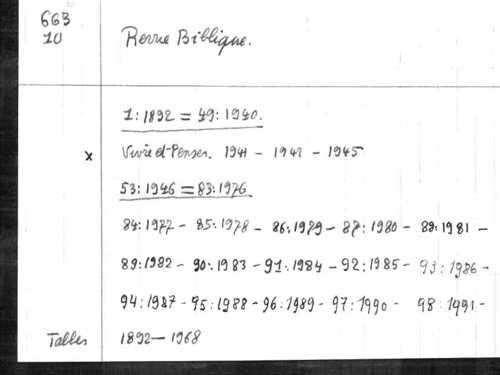 663
10 Revue Biblique.
1:1892 = 49:1940.
x Vivre et Penser. 1941 - 1942 - 1945
53:1946 = 83:1976
84:1977 - 85:1978 - 86:1979 - 87:1980 - 88:1981 -
89:1982 - 90:1983 - 91:1984 - 92:1985 - 93:1986 -
94:1987 - 95:1988 - 96:1989 - 97:1990 - 98:1991 -
Tables 1892 - 1968